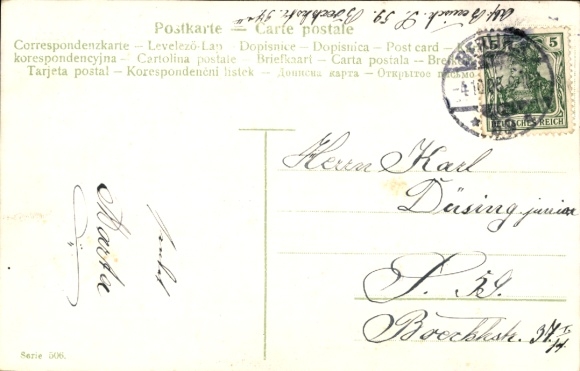 S 59. Böckhstr. 34
Postkarte — Carte postale
Correspondenzkarte – Levelező-Lap – Dopisnice – Dopisnica – Post card –
korespondencyjna – Cartolina postale – Briefkaart – Carta postala –
Tarjeta postal – Korespondenční lístek – Дописна карта – Открытое письмо
5
DEUTSCHES REICH
Herrn Karl
Düsing junior
S. 59.
Boeckhstr.
Marta
Serie 506.